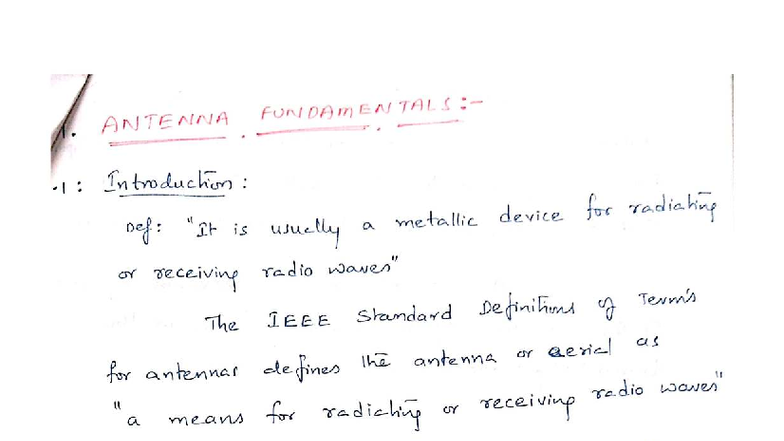 1. ANTENNA FUNDAMENTALS:-
.1: Introduction:
Def: "It is usually a metallic device for radiating
or receiving radio waves"
The IEEE Standard Definitions of Term's
for antennas defines the antenna or aerial as
"a means for radiating or receiving radio waves"